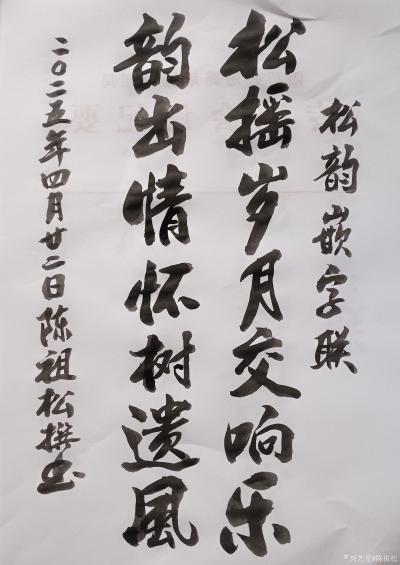 松韵嵌字联
松摇岁月交响乐
韵出情怀树遗风
二〇二五年四月廿二日陈祖松撰书